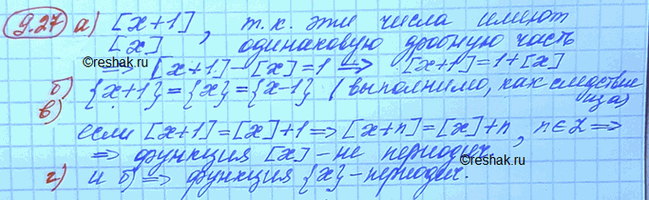 9.27 а) [x+1], т.к. эти числа имеют
[x] одинаковую дробную часть
⟹ [x+1]-[x]=1 ⟹ [x+1]=1+[x]
б) {x+1}={x}={x-1} (выполнимо, как следствие
в) из а)
если [x+1]=[x]+1 ⟹ [x+n]=[x]+n, n∈Z ⟹
⟹ функция [x] - не периодич.
г) и б) ⟹ функция {x} - периодич.
©reshak.ru
©reshak.ru